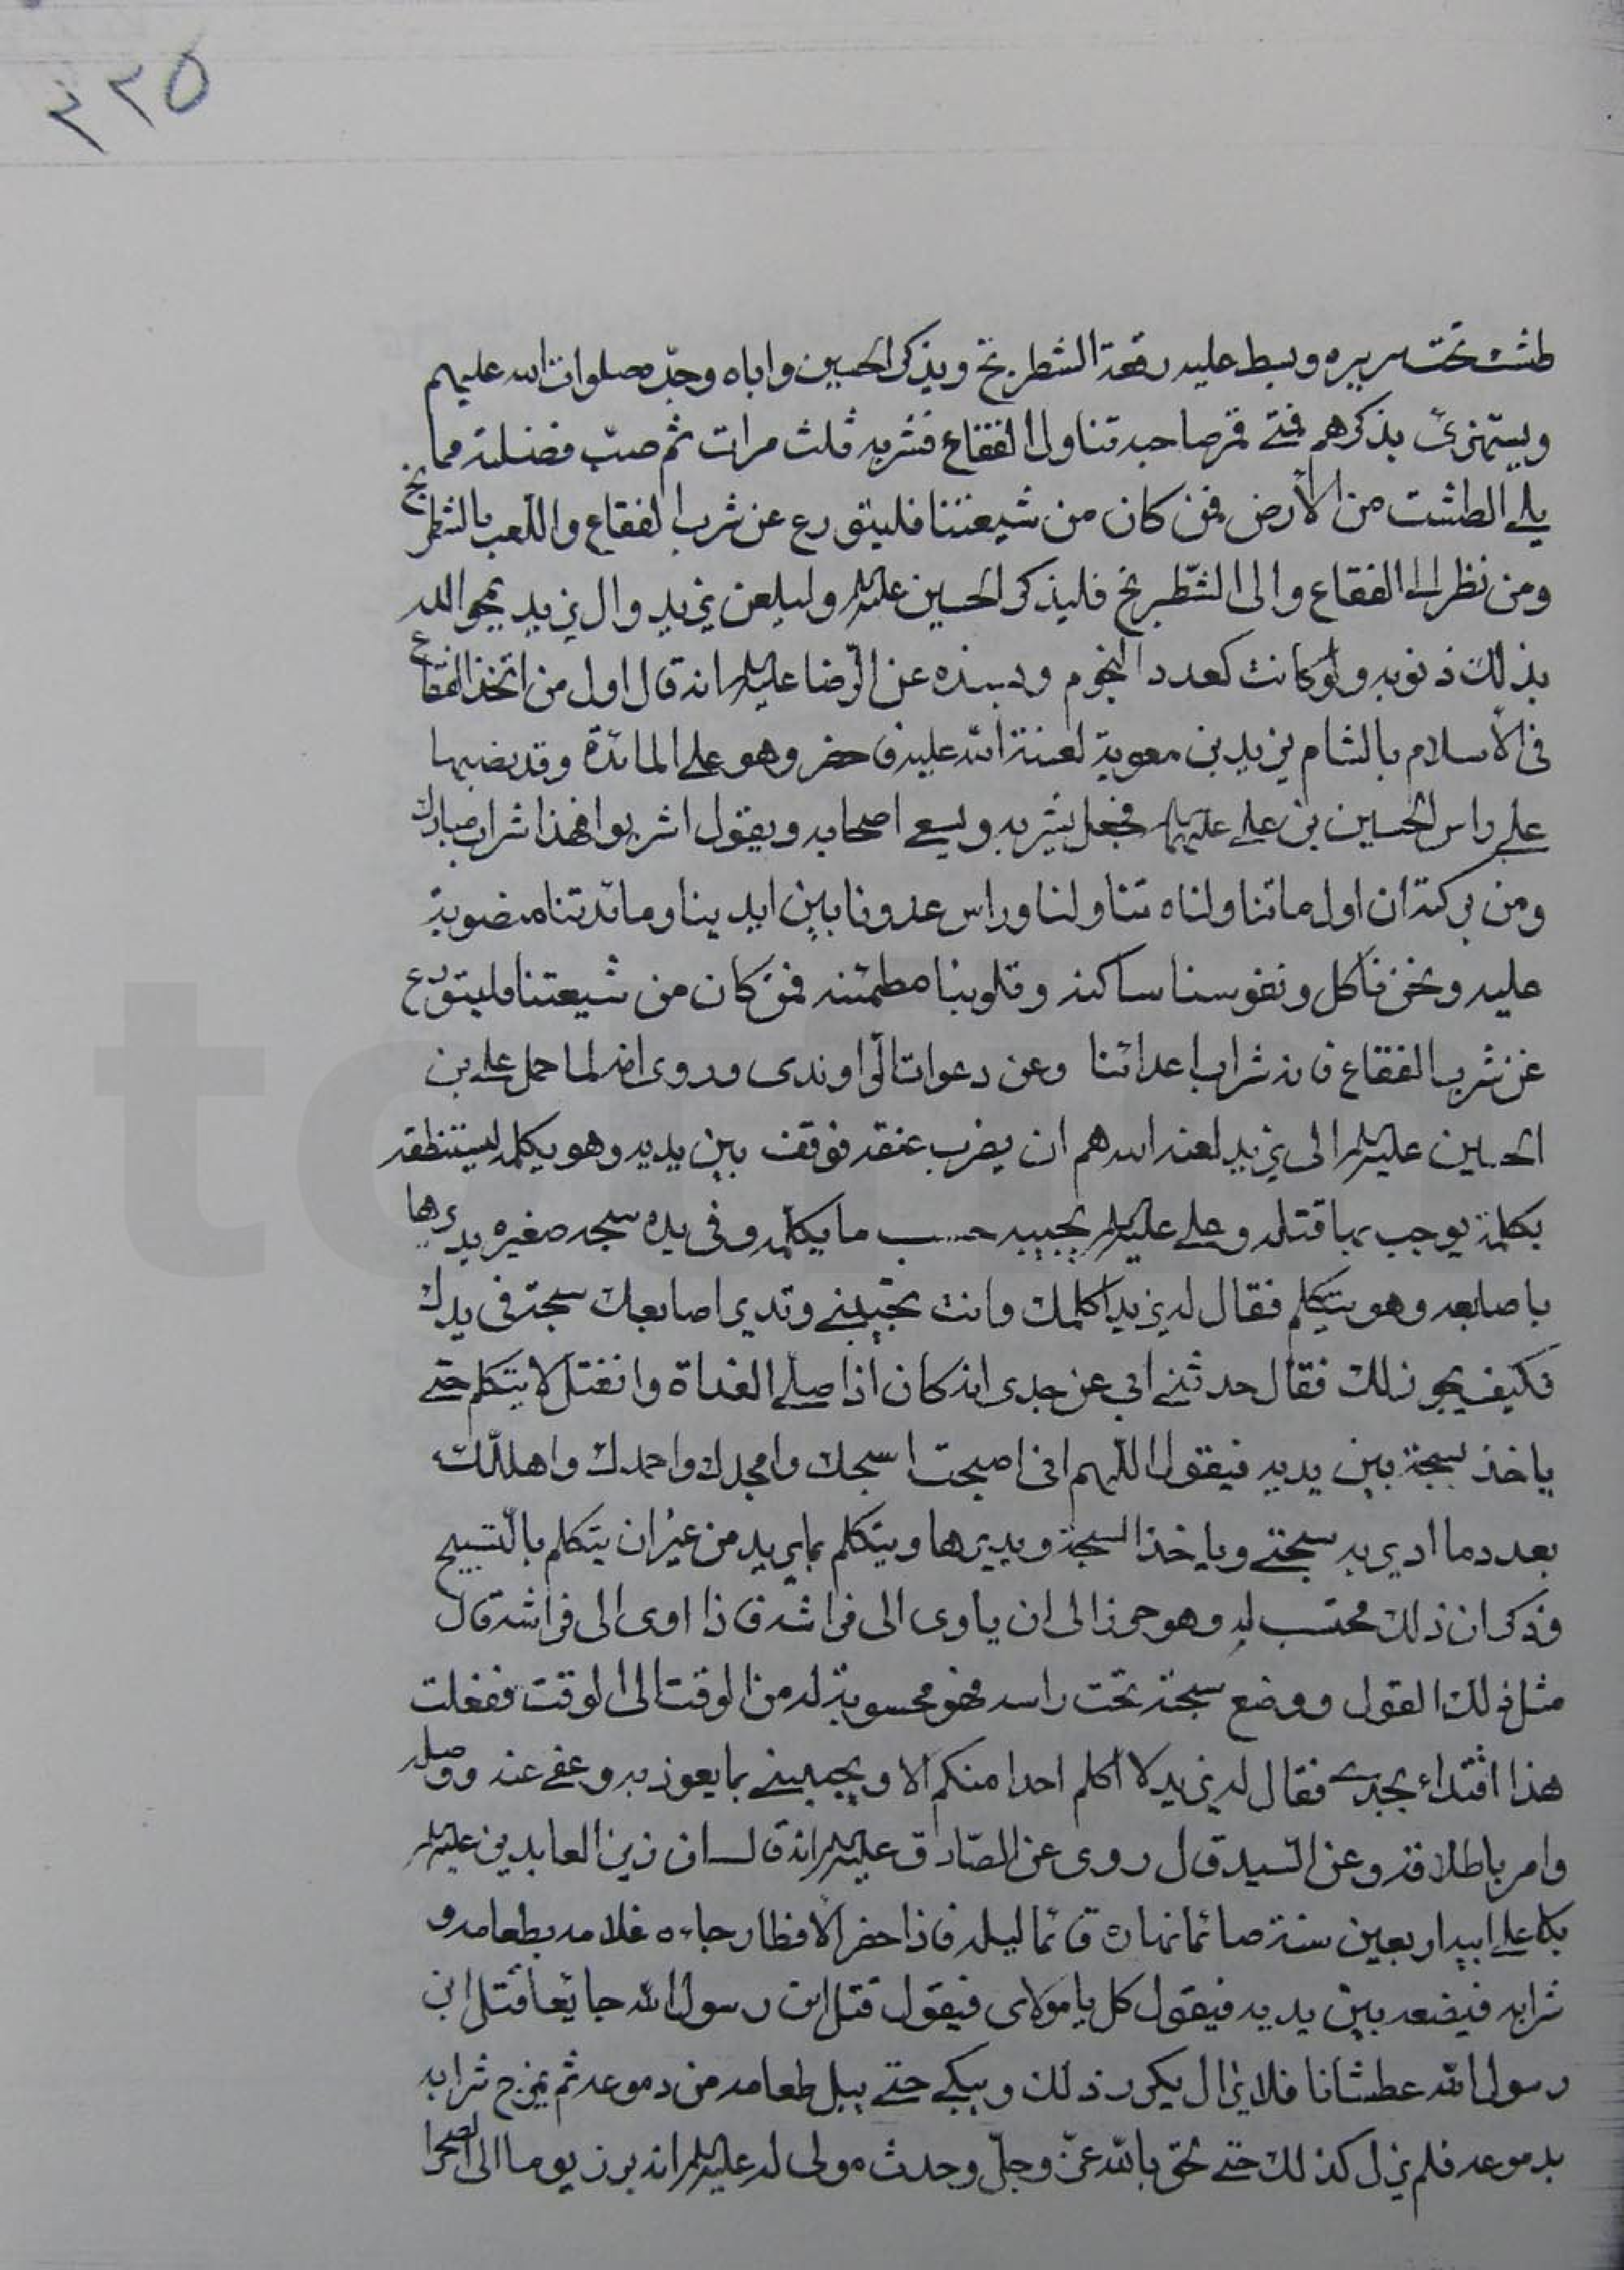 ٢٢٥
طشت تحت سريره وبسط عليه رقعة الشطرنج ويذكر الحسين واباه وجدّه صلوات الله عليهم
ويستهزئ بذكرهم فمتى قمر صاحبه تناول الفقاع فشربه ثلث مرات ثم صبّ فضلته مما
يلي الطشت من الأرض فمن كان من شيعتنا فليتورع عن شرب الفقاع واللّعب بالشطرنج
ومن نظر الى الفقاع والى الشّطرنج فليذكر الحسين عليه السلام وليلعن يزيد وال يزيد يمحو الله
بذلك ذنوبه ولو كانت كعدد النجوم وبسنده عن الرّضا عليه السلام انه قال اول من اتخذ الفقاع
فى الأسلام بالشام يزيد بن معوية لعنة الله عليه فاحضر وهو على المائدة وقد نصبها
على راس الحسين بن على عليهما السلام فجعل يشربه ويسقى اصحابه ويقول اشربوا فهذا شراب مبارك
ومن بركته ان اول ما تناولناه تناولنا وراس عدونا بين ايدينا ومائدتنا منصوبة
عليه ونحن ناكل ونفوسنا ساكنه وقلوبنا مطمئنه فمن كان من شيعتنا فليتورع
عن شرب الفقاع فانه شراب اعدائنا وعن دعوات الرّاوندى وروى انه لما حمل على بن
الحسين عليه السلام الى يزيد لعنه الله هم ان يضرب عنقه فوقف بين يديه وهو يكلمه ليستنطقه
بكلمة يوجب بها قتله وعلى عليه السلام يجيبه حسب ما يكلمه وفى يده سبحه صغيره يديرها
باصابعه وهو يتكلم فقال له يزيد اكلمك وانت تجيبنى وتدير اصابعك سبحة فى يدك
فكيف يجوز ذلك فقال حدثنى ابى عن جدى انه كان اذا صلى الغداة وانفتل لا يتكلم حتى
ياخذ سبحة بين يديه فيقول اللّهم انى اصبحت اسبحك وامجدك واحمدك واهللّك
بعدد ما ادير به سبحتى وياخذ السبحة ويديرها ويتكلم بما يريد من غير ان يتكلم بالتّسبيح
وذكر ان ذلك محتسب له وهو حرز الى ان ياوى الى فراشه فاذا اوى الى فراشه قال
مثل ذلك القول ووضع سبحته تحت راسه فهو محسوبة له من الوقت الى الوقت ففعلت
هذا اقتداء بجدى فقال له يزيد لا اكلم احدا منكم الا ويجيبنى بما يعوذ به وعفى عنه ووصله
وامر باطلاقه وعن السّيد قال روى عن الصّادق عليه السلام انه قال ان زين العابدين عليه السلام
بكا على ابيه اربعين سنة صائما نهاره قائما ليله فاذا حضر الأفطار جاءه غلامه بطعامه و
شرابه فيضعه بين يديه فيقول كل يا مولاى فيقول قتل ابن رسول الله جائعا قتل ابن
رسول الله عطشانا فلا يزال يكرر ذلك ويبكى حتى يبل طعامه من دموعه ثم يمزج شرابه
بدموعه فلم يزل كذلك حتى لحق بالله عزّ وجلّ وحدث مولى له عليه السلام انه برز يوما الى الصحرا